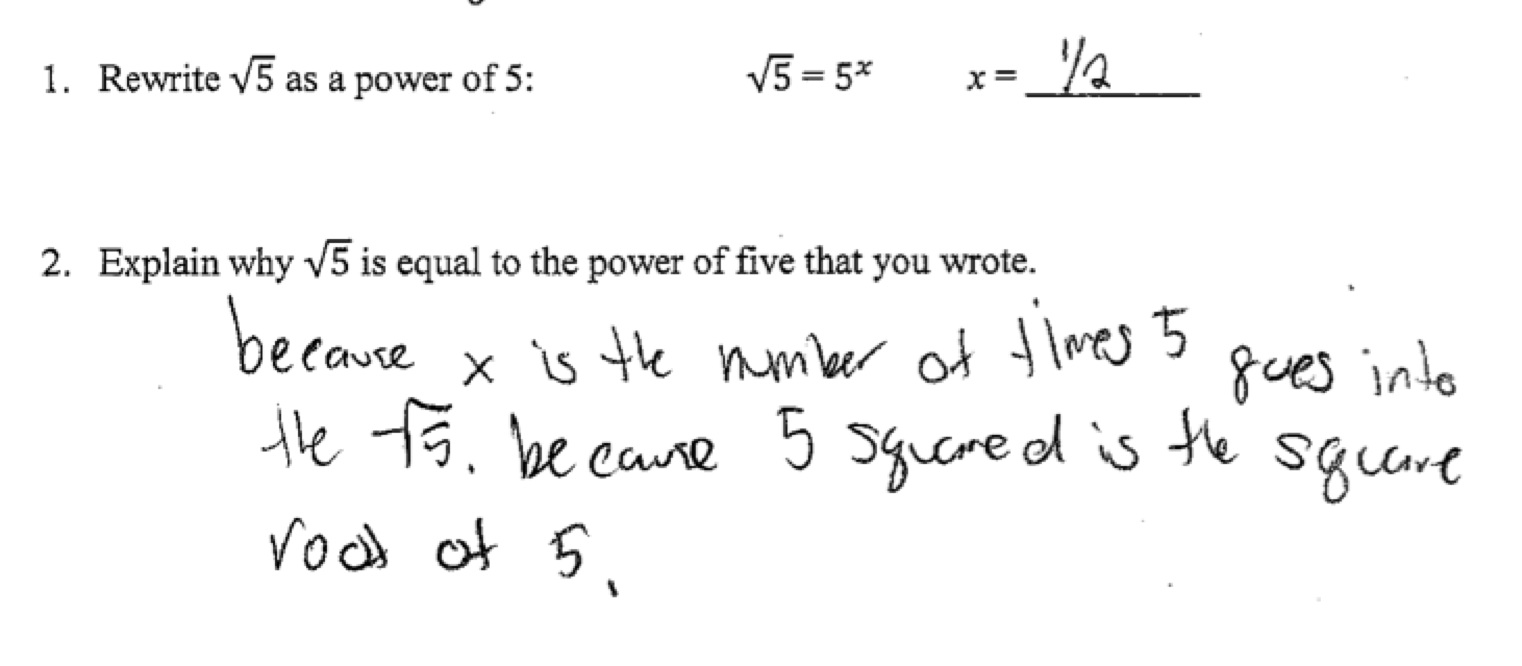 1. Rewrite √5 as a power of 5: √5 = 5ˣ x = 1/2
2. Explain why √5 is equal to the power of five that you wrote.
because x is the number of times 5 goes into
the √5. because 5 squared is the square
root of 5.